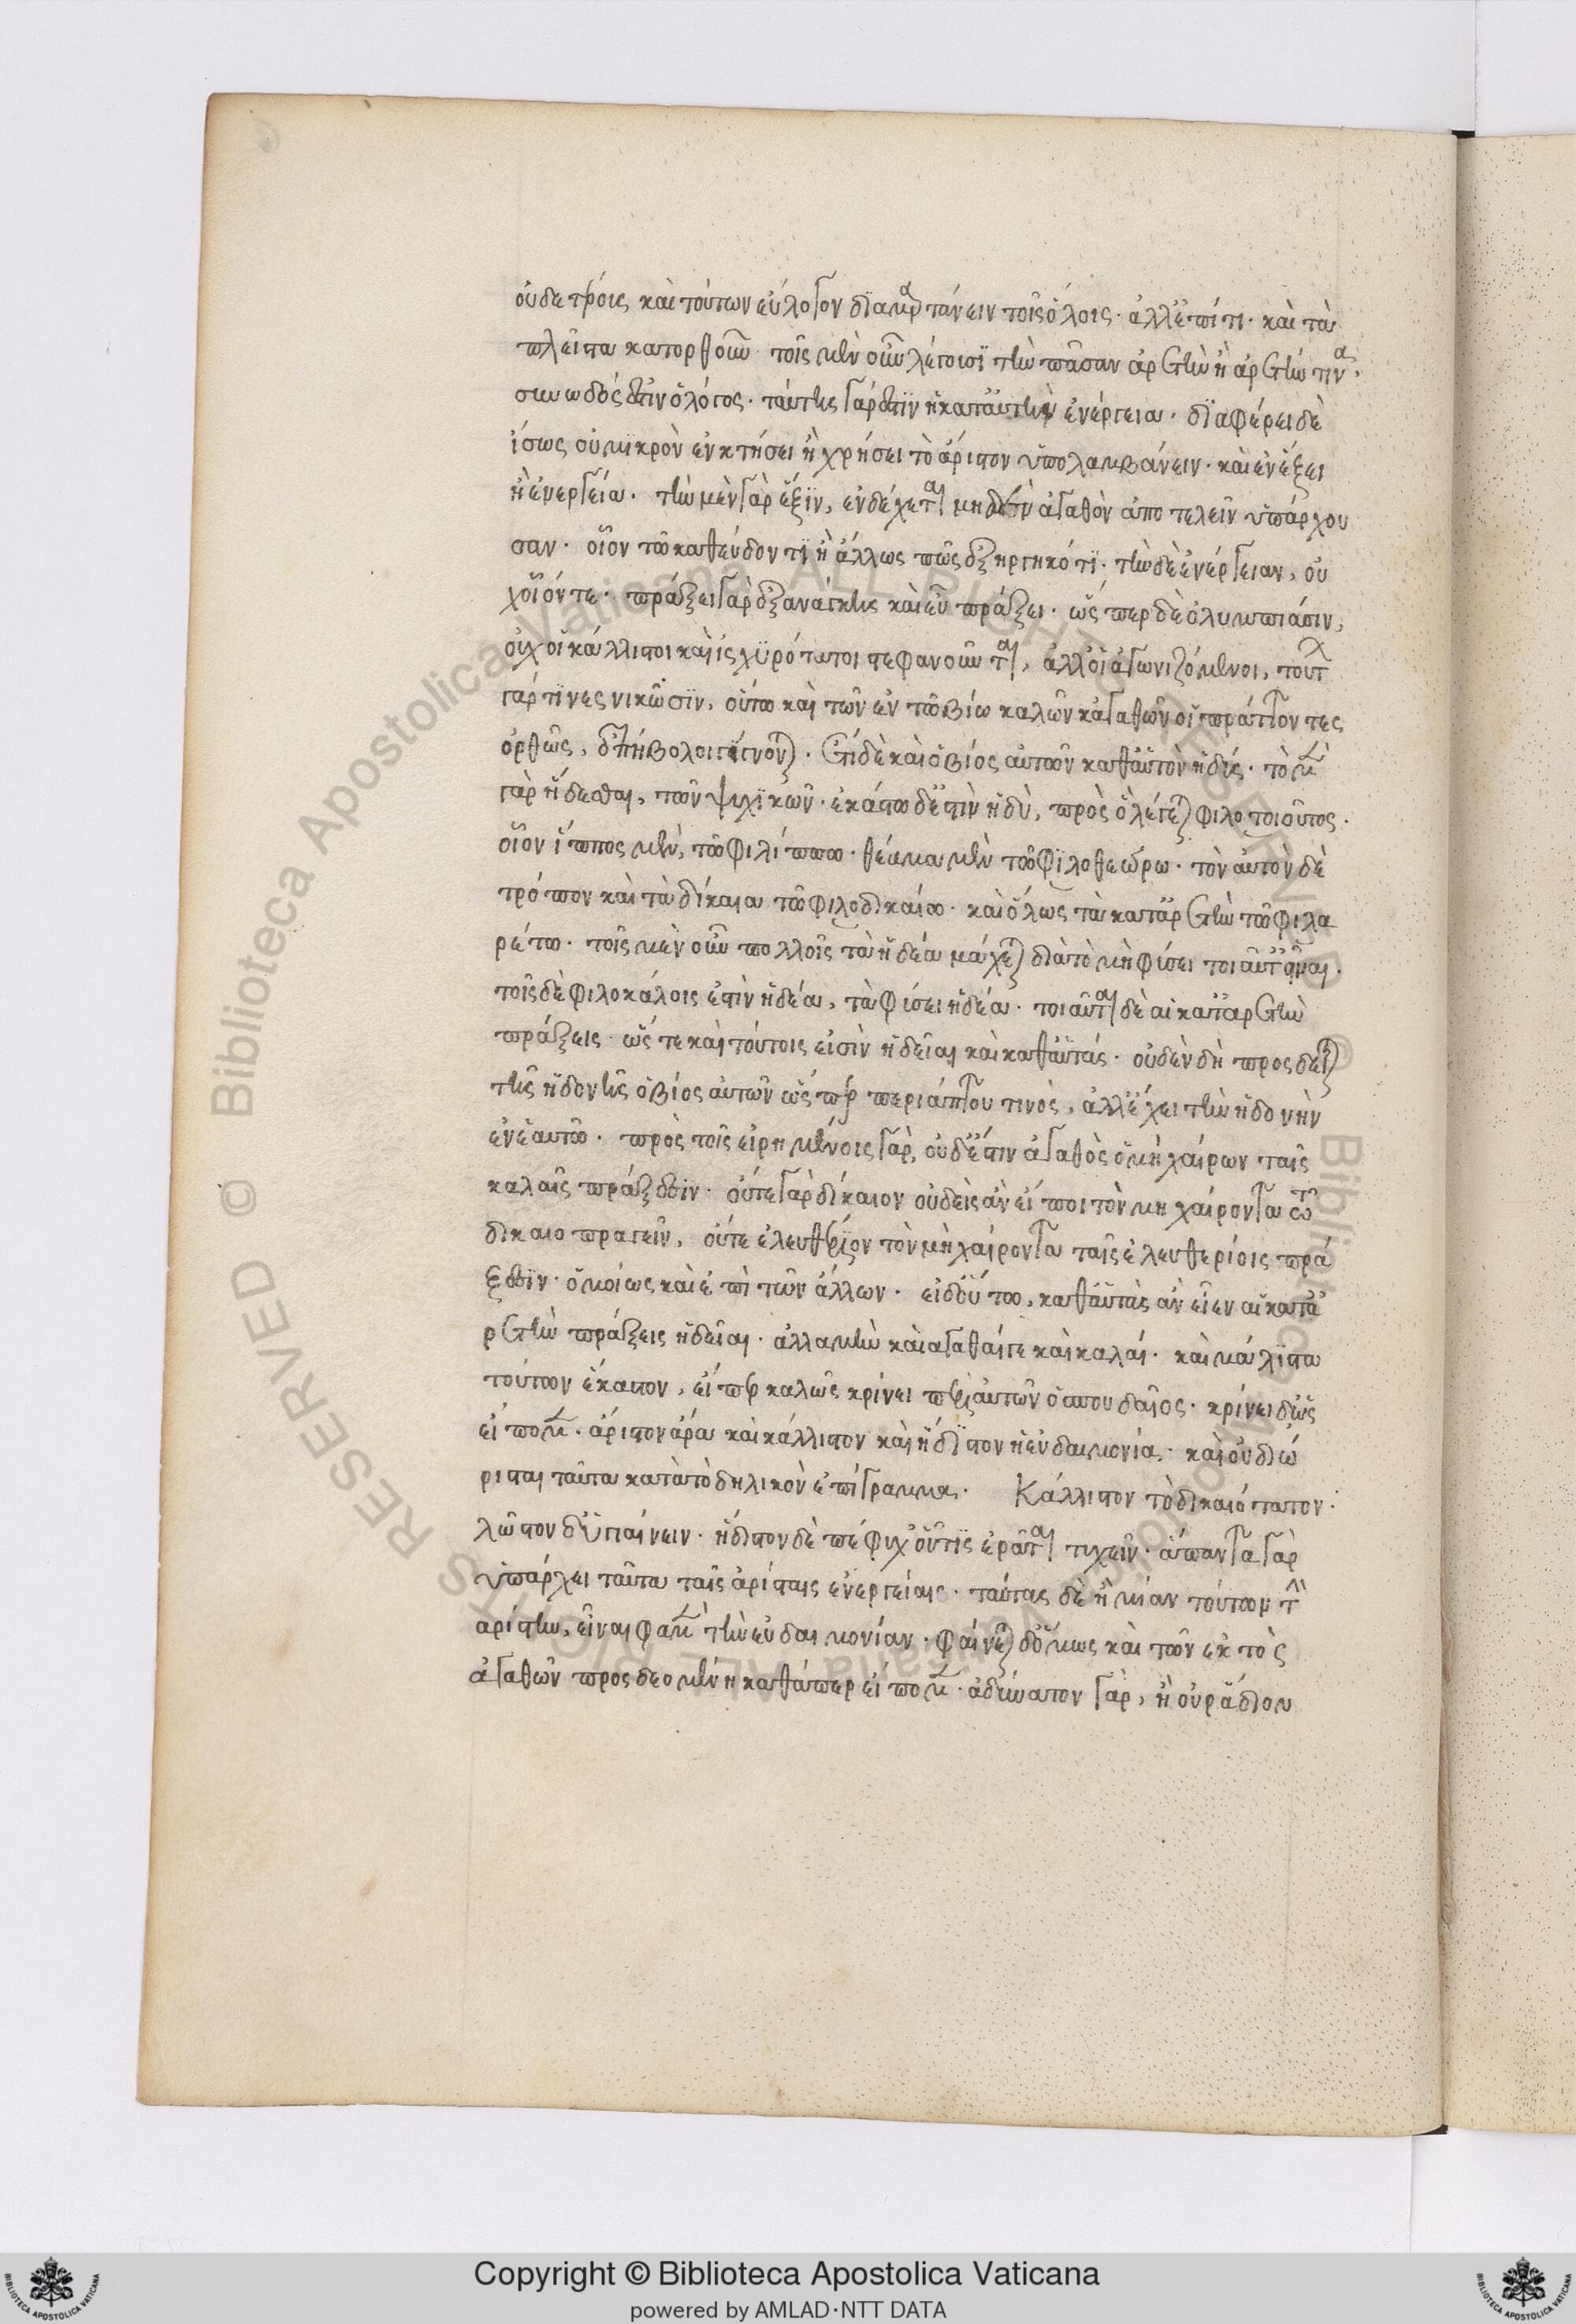 οὐδετέροις καὶ τούτων εὔλογον διαμαρτάνειν τοῖς ὅλοις· ἀλλ' ἕν τι· καὶ τὰ
πλεῖστα κατορθοῦν· τοῖς μὲν οὖν λέγουσι τὴν πᾶσαν ἀρετὴν ἢ ἀρετήν τινα,
συνωδός ἐστιν ὁ λόγος· ταύτης γάρ ἐστιν ἡ κατ' αὐτὴν ἐνέργεια· διαφέρει δὲ
ἴσως οὐ μικρὸν ἐν κτήσει ἢ χρήσει τὸ ἄριστον ὑπολαμβάνειν· καὶ ἐν ἕξει
ἢ ἐνεργεία· τὴν μὲν γὰρ ἕξιν, ἐνδέχεται μηδὲν ἀγαθὸν ἀποτελεῖν ὑπάρχου
σαν· οἷον τῶ καθεύδοντι ἢ ἄλλως πῶς ἐξηργηκότι· τὴν δὲ ἐνέργειαν, οὐ
χ' οἷόν τε· πράξει γὰρ ἐξ ἀνάγκης καὶ εὖ πράξει· ὥσπερ δὲ ὀλυμπιάσιν,
οὐχ οἱ κάλλιστοι καὶ ἰσχυρότατοι στεφανοῦνται, ἀλλ' οἱ ἀγωνιζόμενοι, τούτων
γάρ τινες νικῶσιν, οὕτω καὶ τῶν ἐν τῶ βίω καλῶν κἀγαθῶν οἱ πράττοντες
ὀρθῶς, ἐπήβολοι γίγνονται· ἔστι δὲ καὶ ὁ βίος αὐτῶν καθ' αὑτὸν ἡδύς· τὸ μὲν
γὰρ ἥδεσθαι, τῶν ψυχικῶν· ἑκάστω δ' ἐστὶν ἡδὺ, πρὸς ὃ λέγεται φιλοτοιοῦτος·
οἷον ἵππος μὲν, τῶ φιλίππω· θέαμα μὲν τῶ φιλοθεώρω· τὸν αὐτὸν δὲ
τρόπον καὶ τὰ δίκαια τῶ φιλοδικαίω· καὶ ὅλως τὰ κατ' ἀρετὴν τῶ φιλα
ρέτω· τοῖς μὲν οὖν πολλοῖς τὰ ἡδέα μάχεται διὰ τὸ μὴ φύσει τοιαῦτ' εἶναι·
τοῖς δὲ φιλοκάλοις ἐστὶν ἡδέα, τὰ φύσει ἡδέα· τοιαῦται δὲ αἱ κατ' ἀρετὴν
πράξεις· ὥστε καὶ τούτοις εἰσὶν ἡδεῖαι καὶ καθ' αὑτάς· οὐδὲν δὴ προσδεῖται
τῆς ἡδονῆς ὁ βίος αὐτῶν ὥσπερ περιάπτου τινὸς, ἀλλ' ἔχει τὴν ἡδονὴν
ἐν ἑαυτῶ· πρὸς τοῖς εἰρημένοις γὰρ, οὐδ' ἔστιν ἀγαθὸς ὁ μὴ χαίρων ταῖς
καλαῖς πράξεσιν· οὔτε γὰρ δίκαιον οὐδεὶς ἂν εἴποι τὸν μὴ χαίροντα τῶ
δικαιοπραγεῖν, οὔτε ἐλευθέριον τὸν μὴ χαίροντα ταῖς ἐλευθερίοις πρά
ξεσιν· ὁμοίως καὶ ἐπὶ τῶν ἄλλων· εἰ δ' οὕτω, καθ' αὑτὰς ἂν εἶεν αἱ κατ' ἀ
ρετὴν πράξεις ἡδεῖαι· ἀλλὰ μὴν καὶ ἀγαθαί γε καὶ καλαί· καὶ μάλιστα
τούτων ἕκαστον, εἴπερ καλῶς κρίνει περὶ αὐτῶν ὁ σπουδαῖος· κρίνει δ' ὡς
εἴπομεν· ἄριστον ἄρα καὶ κάλλιστον καὶ ἥδιστον ἡ εὐδαιμονία· καὶ οὐ διώ
ρισται ταῦτα κατὰ τὸ δηλικὸν ἐπίγραμμα· Κάλλιστον τὸ δικαιότατον·
λῶστον δ' ὑγιαίνειν· ἥδιστον δὲ πέφυχ' οὗ τις ἐρᾶται τυχεῖν· ἅπαντα γὰρ
ὑπάρχει ταῦτα ταῖς ἀρίσταις ἐνεργείαις· ταύτας δὲ ἢ μίαν τούτων τὴν
ἀρίστην, εἶναι φαμὲν τὴν εὐδαιμονίαν· φαίνεται δ' ὅμως καὶ τῶν ἐκτὸς
ἀγαθῶν προσδεομένη καθάπερ εἴπομεν· ἀδύνατον γὰρ, ἢ οὐ ῥάδιον
Copyright © Biblioteca Apostolica Vaticana
powered by AMLAD·NTT DATA